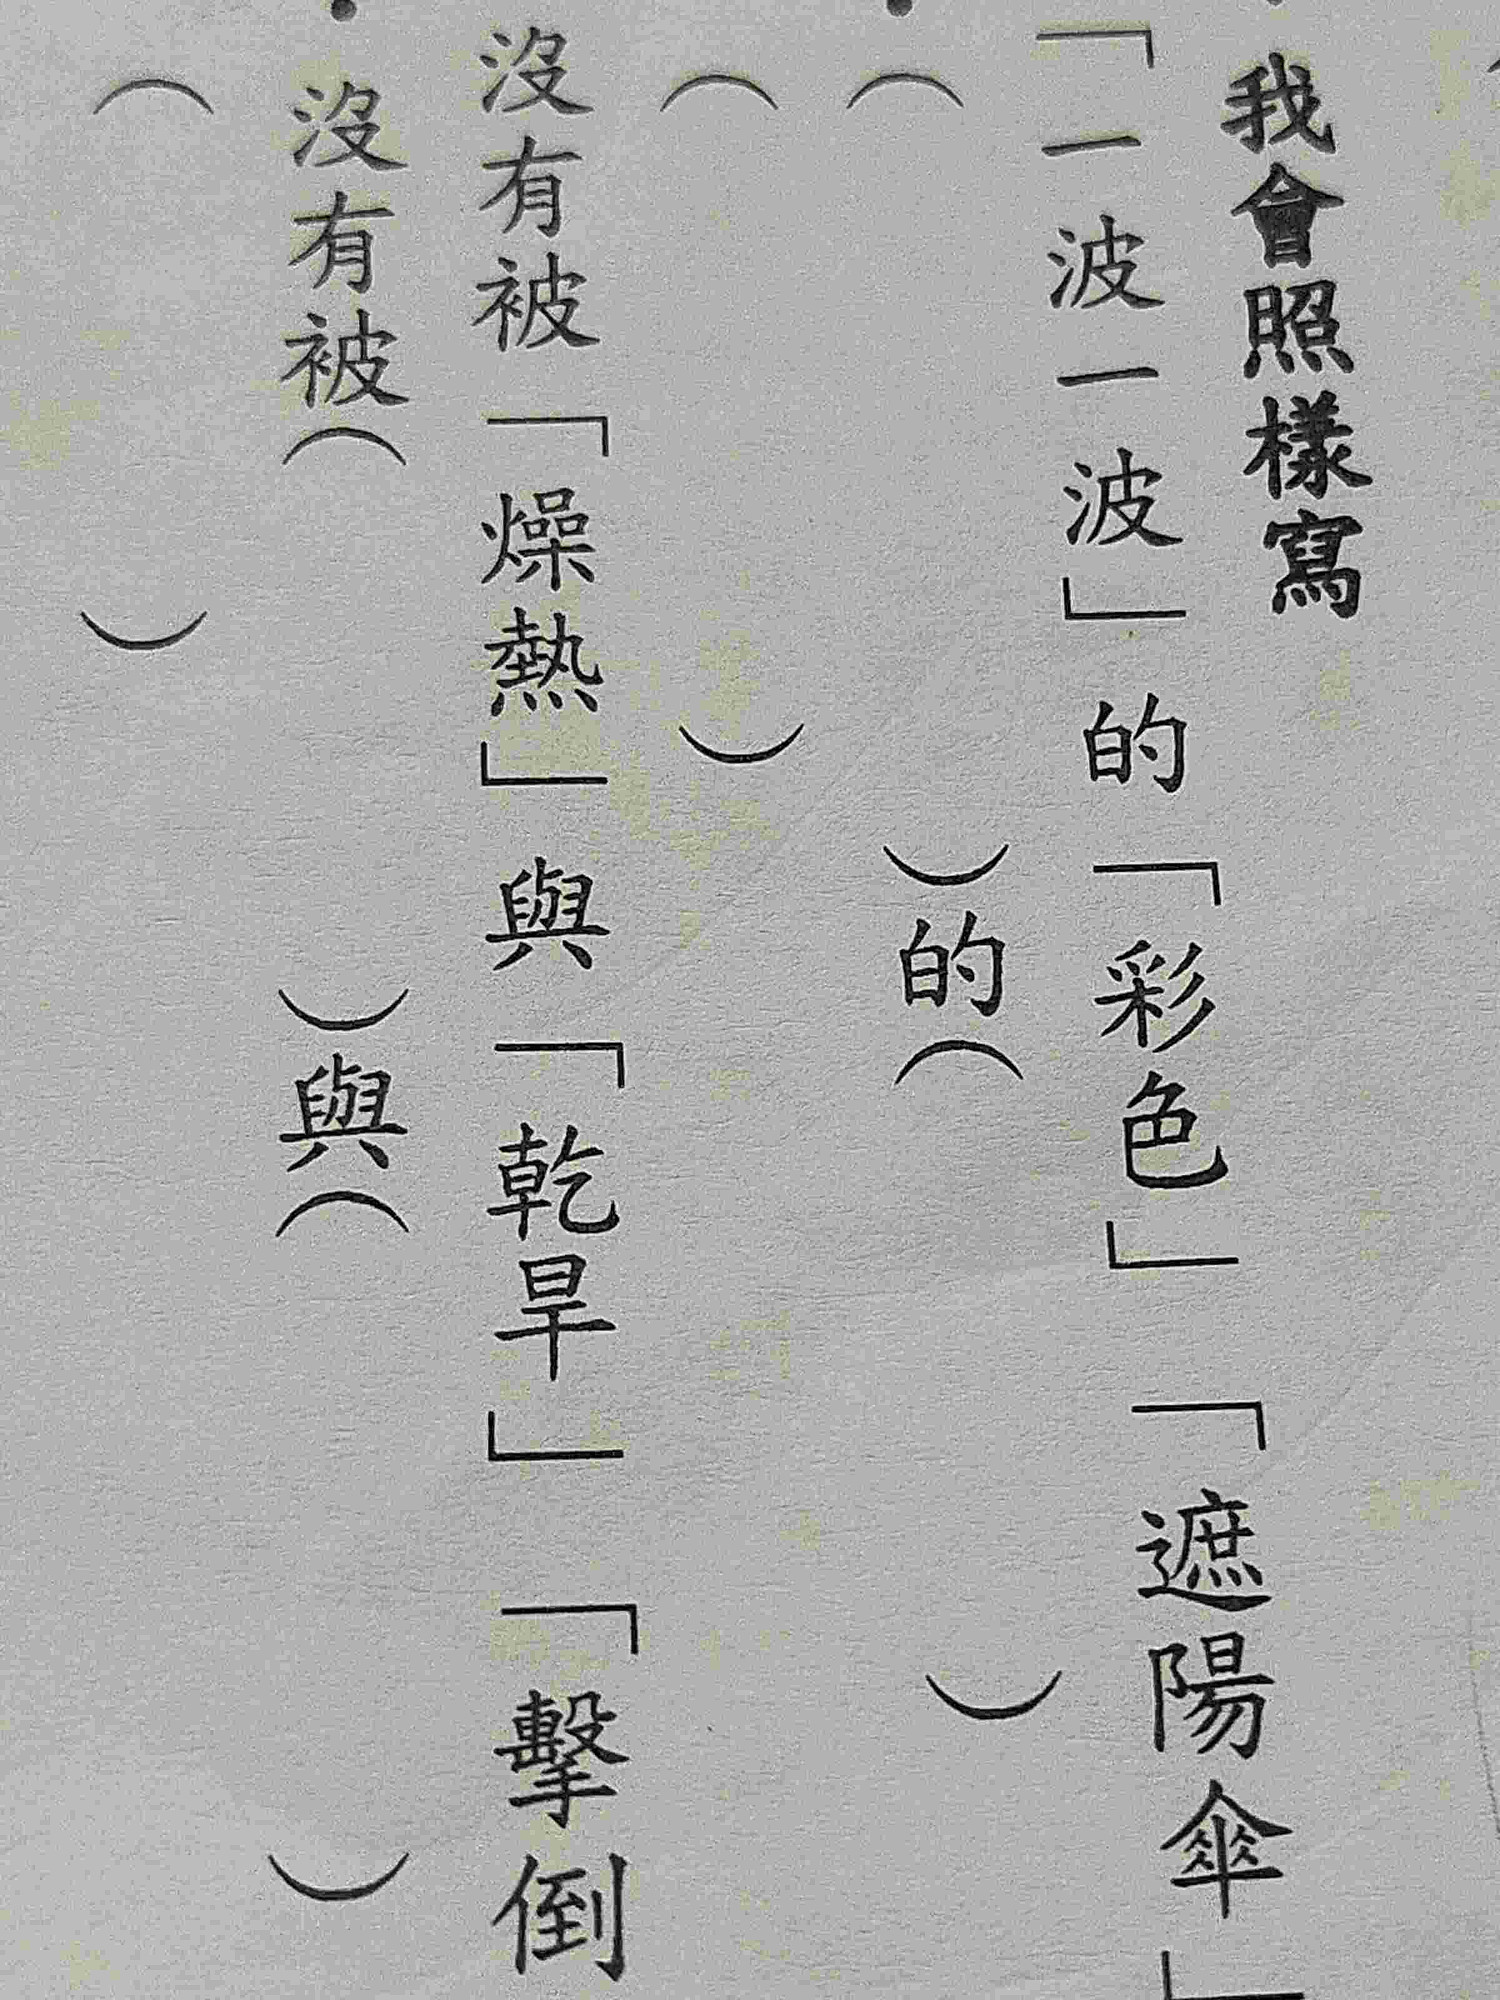 我會照樣寫
「一波一波」的「彩色」「遮陽傘」
（　　　）的（　　　）
（　　　）
沒有被「燥熱」與「乾旱」「擊倒
沒有被（　　　）與（　　　）
（　　　）